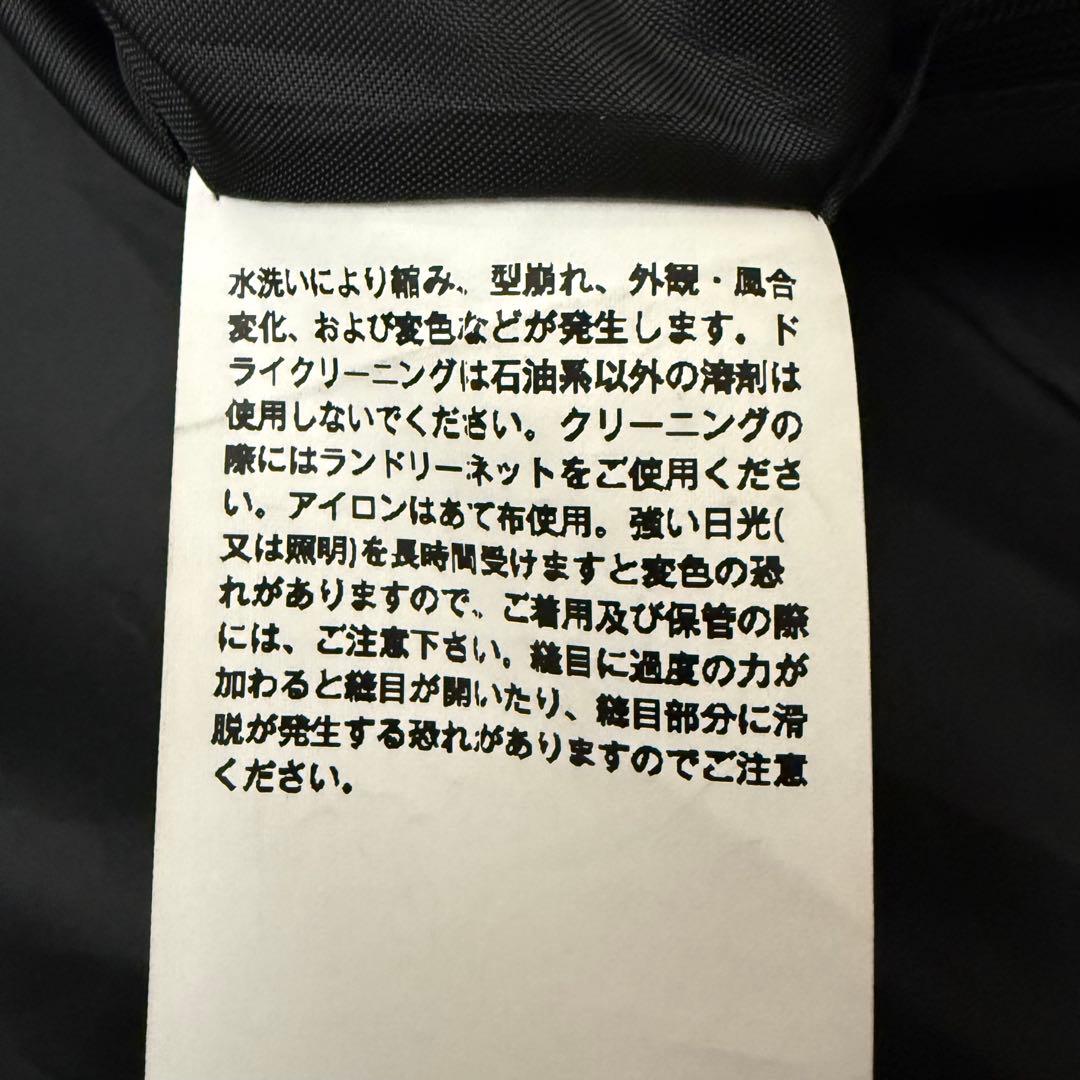 水洗いにより縮み、型崩れ、外観・風合
変化、および変色などが発生します。ド
ライクリーニングは石油系以外の溶剤は
使用しないでください。クリーニングの
際にはランドリーネットをご使用くださ
い。アイロンはあて布使用。強い日光(
又は照明)を長時間受けますと変色の恐
れがありますので、ご着用及び保管の際
には、ご注意下さい。縫目に過度の力が
加わると縫目が開いたり、縫目部分に滑
脱が発生する恐れがありますのでご注意
ください。